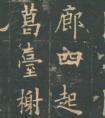 廊四起
曷臺榭